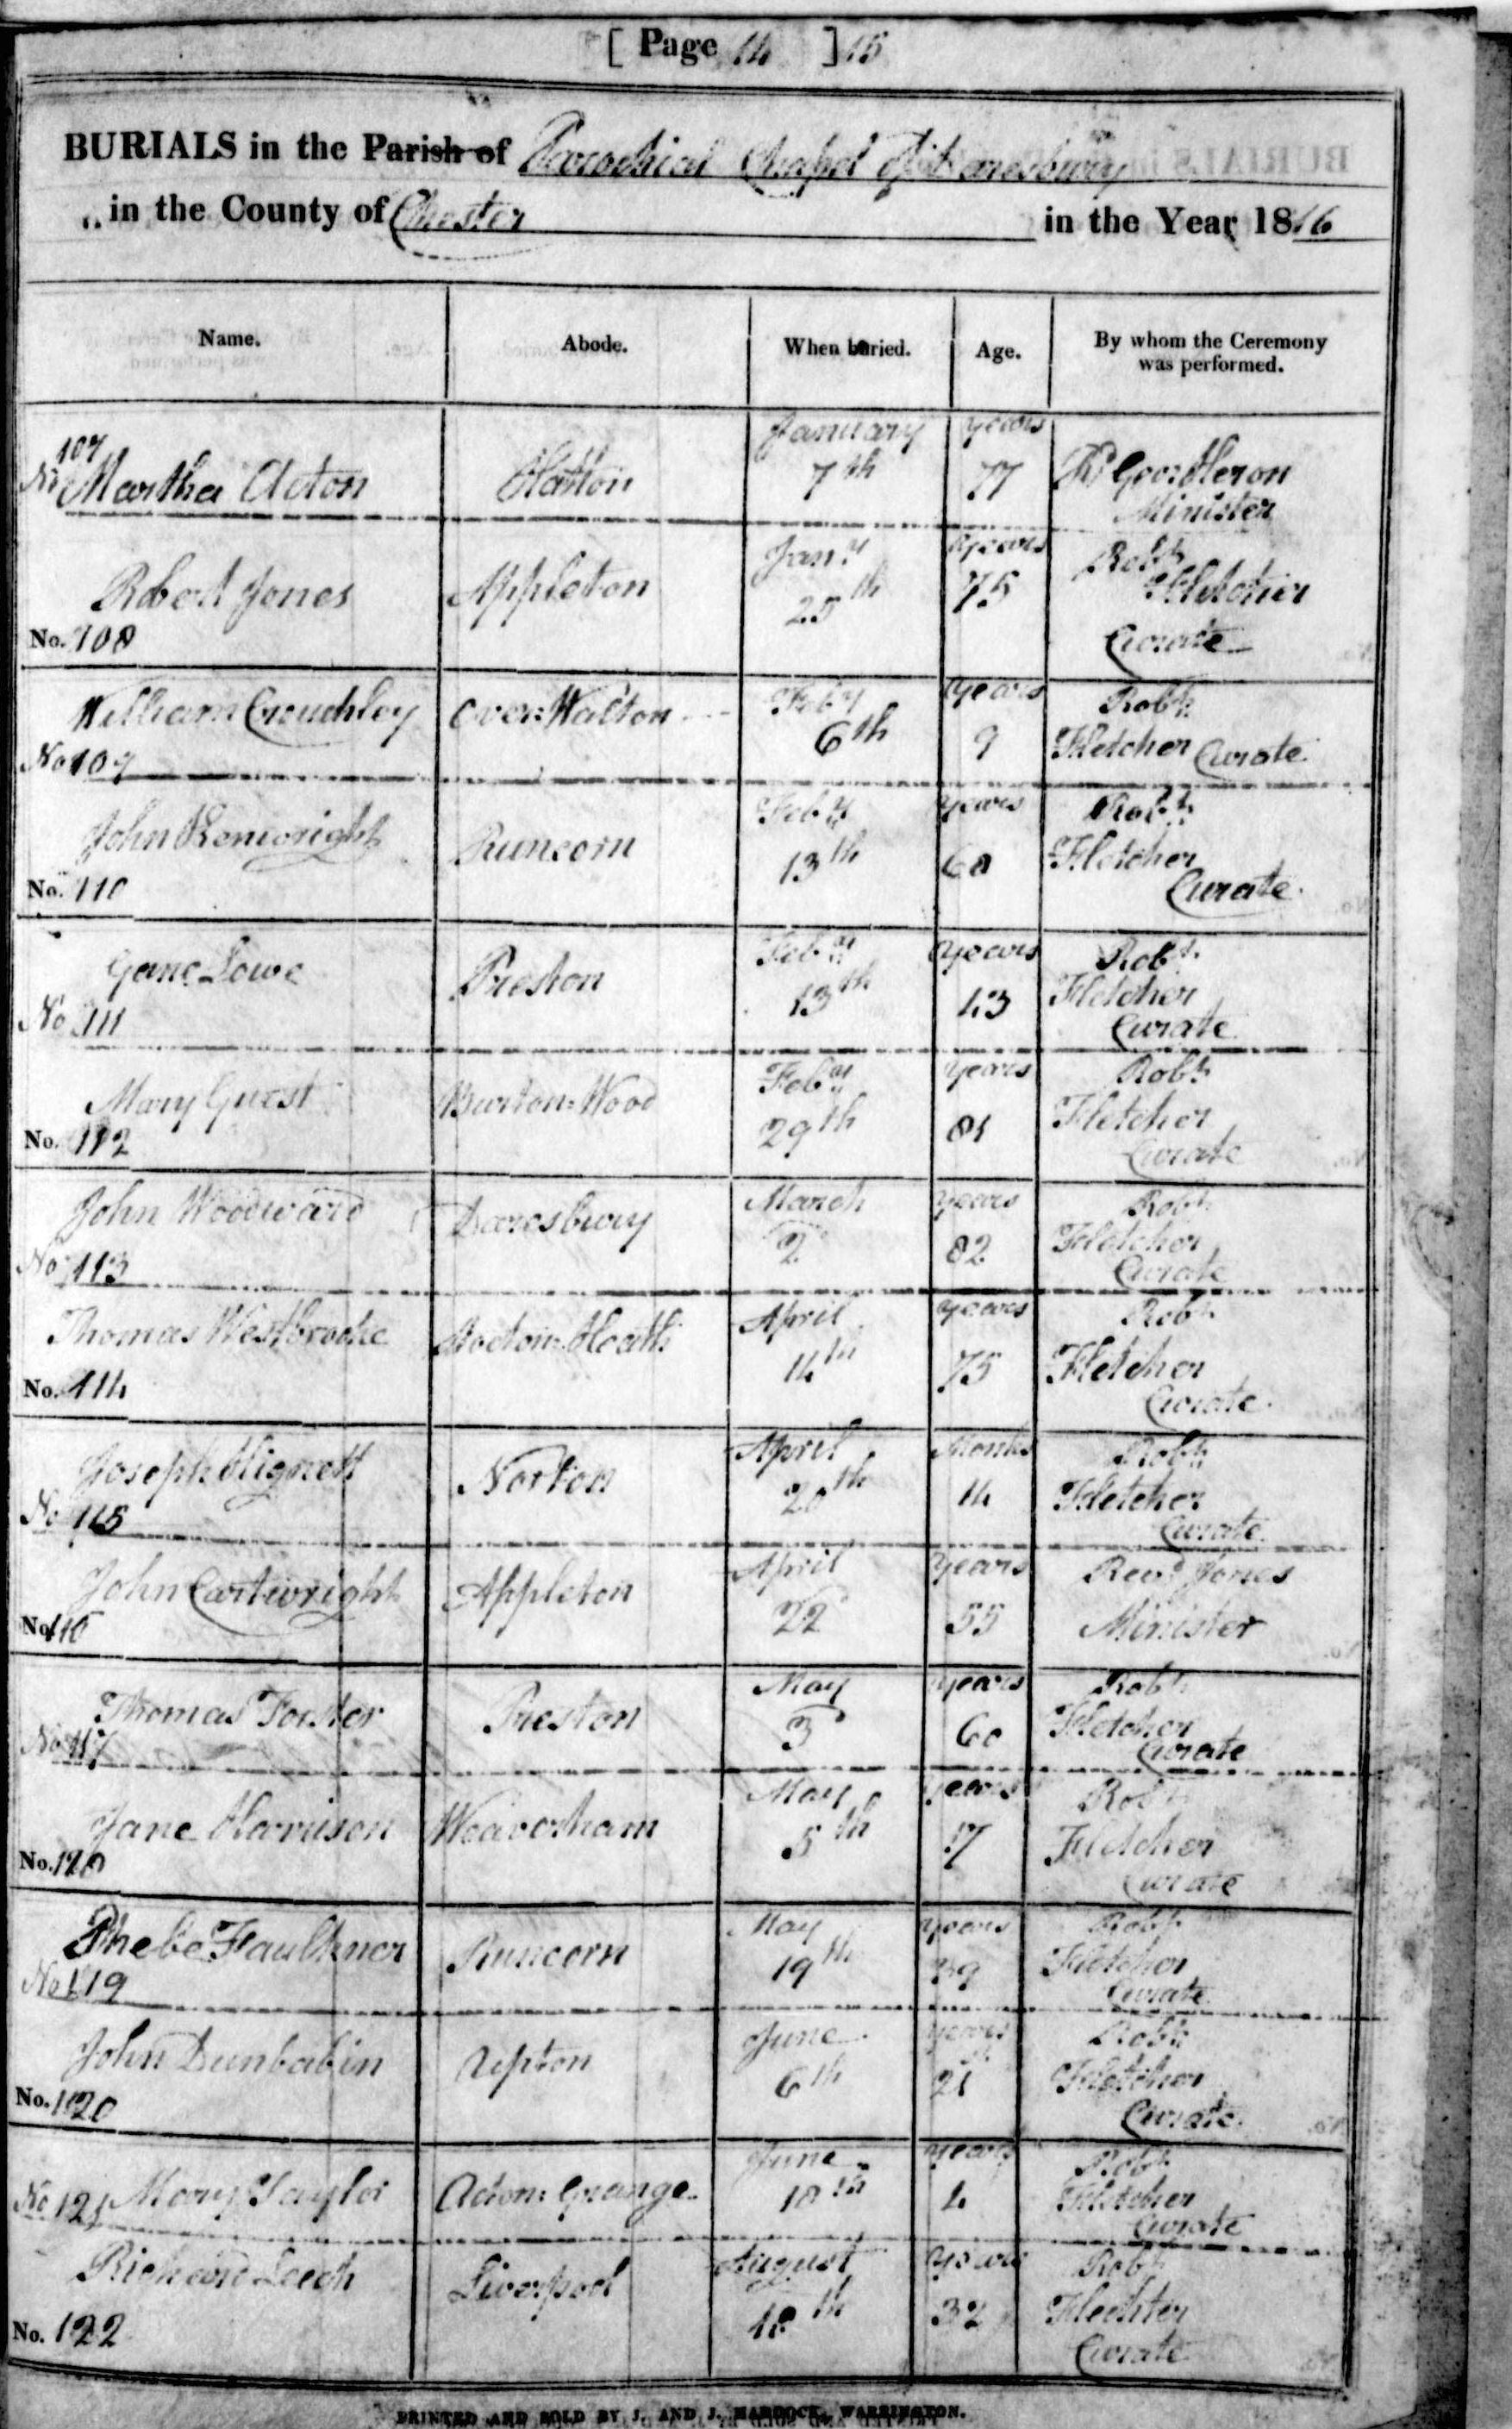 [ Page 14 ] 15
BURIALS in the Parish of Parochial Chapel of Daresbury
in the County of Chester in the Year 1816
Name. Abode. When buried. Age. By whom the Ceremony was performed.
107
No Martha Acton Hatton January 7th years 77 Rd Geo: Heron Minister
Robert Jones Appleton Jany 25th years 75 Robt Fletcher Curate
No. 108
William Crouchley Over=Walton Feby 6th years 9 Robt Fletcher Curate
No 109
John Kenwright Runcorn Feby 13th years 68 Robt Fletcher Curate
No. 110
Jane Lowe Preston Feby 13th years 43 Robt Fletcher Curate
No 111
Mary Guest Burton=Wood Feby 29th years 81 Robt Fletcher Curate
No. 112
John Woodward Daresbury March 2 years 82 Robt Fletcher Curate
No 113
Thomas Westbrooke Stocton=Heath April 14th years 75 Robt Fletcher Curate
No. 114
Joseph Hignett Norton April 20th Months 14 Robt Fletcher Curate
No 115
John Cartwright Appleton April 22 years 55 Revd Jones Minister
No. 116
Thomas Forster Preston May 3d years 60 Robt Fletcher Curate
No 117
Jane Harrison Weaverham May 5th years 17 Robt Fletcher Curate
No.
Phebe Faulkner Runcorn May 19th years 39 Robt Fletcher Curate
No 119
John Dunbabin Upton June 6th years 21 Robt Fletcher Curate
No. 120
No 121 Mary Taylor Acton=Grange June 18th years 4 Robt Fletcher Curate
Richard Leech Liverpool August 18th years 32 Robt Flechter Curate
No. 122
PRINTED AND SOLD BY J. AND J. HADDOCK, WARRINGTON.